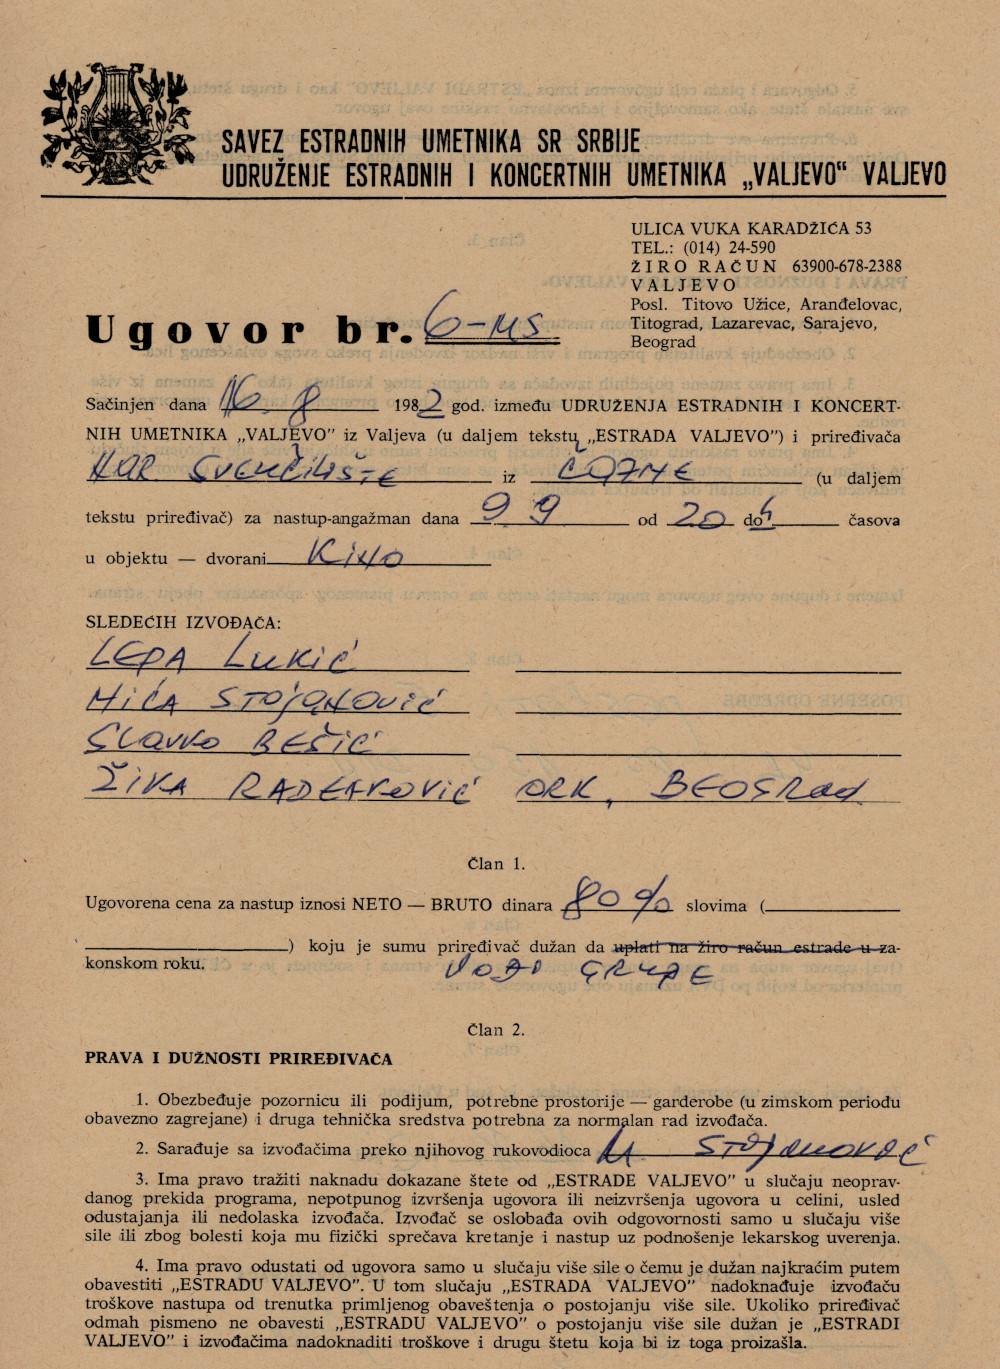 SAVEZ ESTRADNIH UMETNIKA SR SRBIJE
UDRUŽENJE ESTRADNIH I KONCERTNIH UMETNIKA „VALJEVO“ VALJEVO
ULICA VUKA KARADŽIĆA 53
TEL.: (014) 24-590
ŽIRO RAČUN 63900-678-2388
VALJEVO
Posl. Titovo Užice, Aranđelovac,
Titograd, Lazarevac, Sarajevo,
Beograd
Ugovor br. 6-MS
Sačinjen dana 16 8 1982 god. između UDRUŽENJA ESTRADNIH I KONCERT-
NIH UMETNIKA „VALJEVO” iz Valjeva (u daljem tekstu „ESTRADA VALJEVO”) i priređivača
NAR. SVEUČILIŠTE iz ČAZME (u daljem
tekstu priređivač) za nastup-angažman dana 9 9 od 20 do časova
u objektu — dvorani KINO
SLEDEĆIH IZVOĐAČA:
LEPA LUKIĆ
MIĆA STOJANOVIĆ
SLAVKO BEŠIĆ
ŽIKA RADENKOVIĆ ORK. BEOGRAD
Član 1.
Ugovorena cena za nastup iznosi NETO — BRUTO dinara 80% slovima (
) koju je sumu priređivač dužan da uplati na žiro račun estrade u za-
konskom roku. VOĐI GRUPE
Član 2.
PRAVA I DUŽNOSTI PRIREĐIVAČA
1. Obezbeđuje pozornicu ili podijum, potrebne prostorije — garderobe (u zimskom periodu
obavezno zagrejane) i druga tehnička sredstva potrebna za normalan rad izvođača.
2. Sarađuje sa izvođačima preko njihovog rukovodioca M STOJANOVIĆ
3. Ima pravo tražiti naknadu dokazane štete od „ESTRADE VALJEVO” u slučaju neoprav-
danog prekida programa, nepotpunog izvršenja ugovora ili neizvršenja ugovora u celini, usled
odustajanja ili nedolaska izvođača. Izvođač se oslobađa ovih odgovornosti samo u slučaju više
sile ili zbog bolesti koja mu fizički sprečava kretanje i nastup uz podnošenje lekarskog uverenja.
4. Ima pravo odustati od ugovora samo u slučaju više sile o čemu je dužan najkraćim putem
obavestiti „ESTRADU VALJEVO”. U tom slučaju „ESTRADA VALJEVO” nadoknađuje izvođaču
troškove nastupa od trenutka primljenog obaveštenja o postojanju više sile. Ukoliko priređivač
odmah pismeno ne obavesti „ESTRADU VALJEVO” o postojanju više sile dužan je „ESTRADI
VALJEVO” i izvođačima nadoknaditi troškove i drugu štetu koja bi iz toga proizašla.